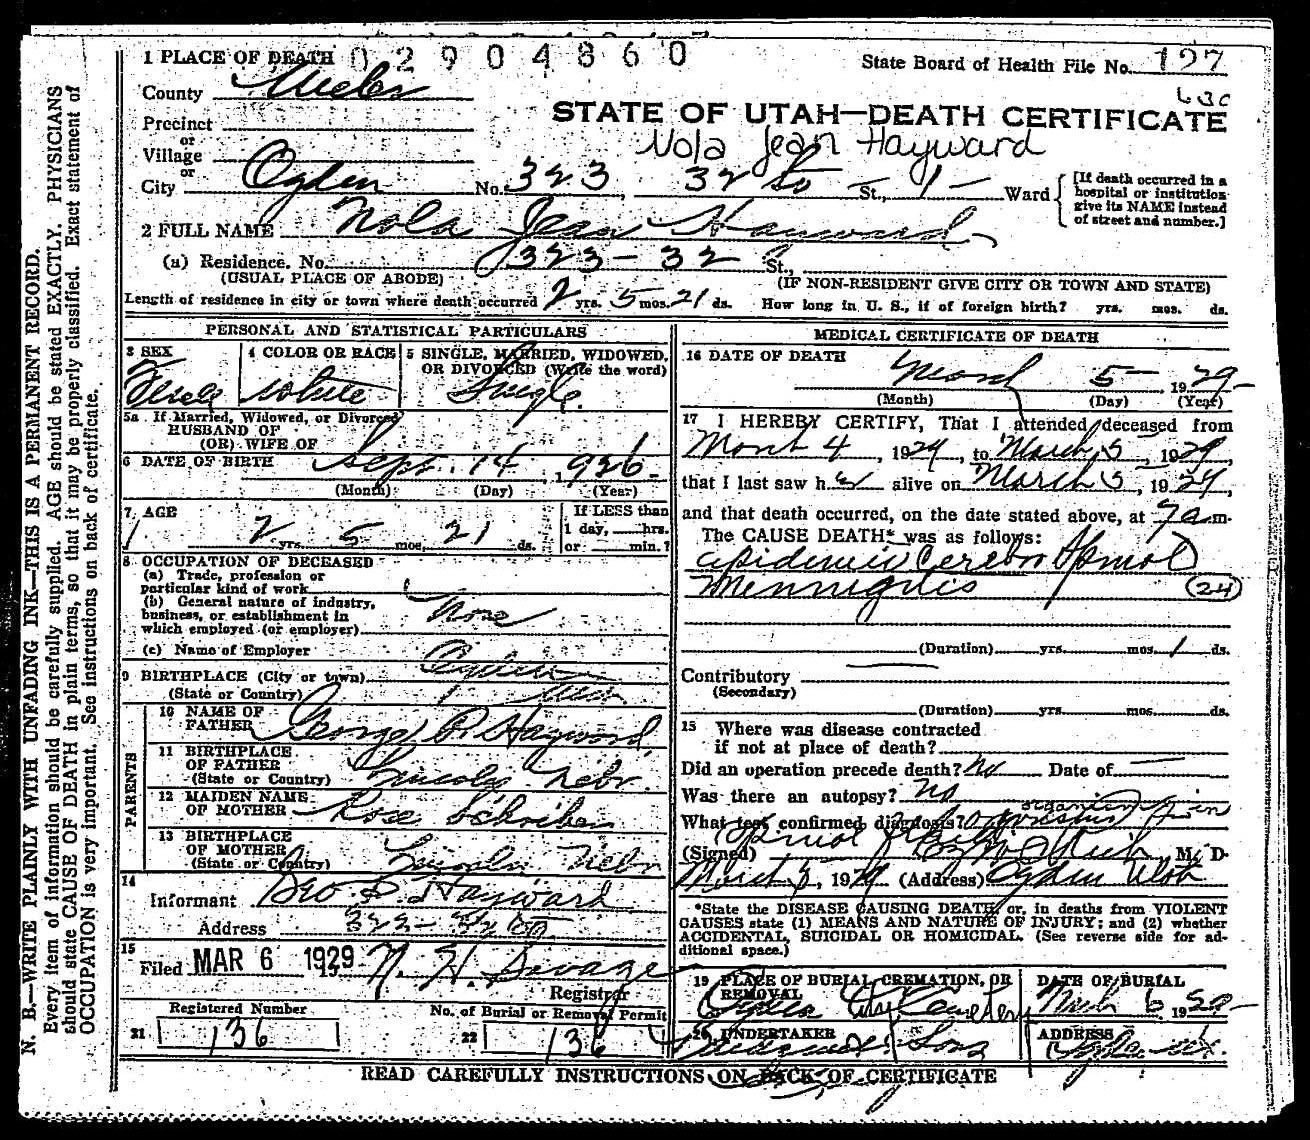 02904860
1 PLACE OF DEATH
State Board of Health File No. 127
County Weber
STATE OF UTAH—DEATH CERTIFICATE
Precinct
Nola Jean Hayward
or
Village
or
City Ogden No. 323, 32 St., 1 Ward
[If death occurred in a hospital or institution give its NAME instead of street and number.]
2 FULL NAME Nola Jean Hayward
(a) Residence. No. 323-32 St.,
(USUAL PLACE OF ABODE) (IF NON-RESIDENT GIVE CITY OR TOWN AND STATE)
Length of residence in city or town where death occurred 2 yrs. 5 mos. 21 ds. How long in U. S., if of foreign birth? yrs. mos. ds.
PERSONAL AND STATISTICAL PARTICULARS
3 SEX
4 COLOR OR RACE
5 SINGLE, MARRIED, WIDOWED,
OR DIVORCED (Write the word)
white Single
5a If Married, Widowed, or Divorced
HUSBAND OF
(OR) WIFE OF
6 DATE OF BIRTH Sept. 14, 1926
(Month) (Day) (Year)
7 AGE
If LESS than
1 day, hrs.
or min.?
2 yrs. 5 mos. 21 ds.
8 OCCUPATION OF DECEASED
(a) Trade, profession or
particular kind of work
(b) General nature of industry,
business, or establishment in
which employed (or employer)
None
(c) Name of Employer
9 BIRTHPLACE (City or town) Ogden
(State or Country) Utah
PARENTS
10 NAME OF
FATHER George P. Hayward
11 BIRTHPLACE
OF FATHER
(State or Country) Lincoln Nebr.
12 MAIDEN NAME
OF MOTHER Rose Schriber
13 BIRTHPLACE
OF MOTHER
(State or Country) Lincoln Nebr
14
Informant Geo P Hayward
Address
15
Filed MAR 6 1929
Registrar
Registered Number
21 136
No. of Burial or Removal Permit
22 136
MEDICAL CERTIFICATE OF DEATH
16 DATE OF DEATH
March 5, 1929
(Month) (Day) (Year)
17 I HEREBY CERTIFY, That I attended deceased from
4, 1929, to March 5, 1929,
that I last saw her alive on March 5, 1929,
and that death occurred, on the date stated above, at 7 a m.
The CAUSE DEATH* was as follows:
Epidemic Cerebro Spinal
Menningitis (24)
(Duration) yrs. mos. 1 ds.
Contributory
(Secondary)
(Duration) yrs. mos. ds.
15 Where was disease contracted
if not at place of death?
Did an operation precede death? No Date of
Was there an autopsy? No
What test confirmed diagnosis? organism in
Spinal
(Signed) M. D.
March, 1929 (Address) Ogden Utah
*State the DISEASE CAUSING DEATH, or, in deaths from VIOLENT
CAUSES state (1) MEANS AND NATURE OF INJURY; and (2) whether
ACCIDENTAL, SUICIDAL OR HOMICIDAL. (See reverse side for ad-
ditional space.)
19 PLACE OF BURIAL, CREMATION, OR
REMOVAL
Ogden City Cemetery
DATE OF BURIAL
March 6, 19
20 UNDERTAKER
Sons
ADDRESS
READ CAREFULLY INSTRUCTIONS ON BACK OF CERTIFICATE
N. B.—WRITE PLAINLY WITH UNFADING INK—THIS IS A PERMANENT RECORD.
Every item of information should be carefully supplied. AGE should be stated EXACTLY. PHYSICIANS
should state CAUSE OF DEATH in plain terms, so that it may be properly classified. Exact statement of
OCCUPATION is very important. See instructions on back of certificate.